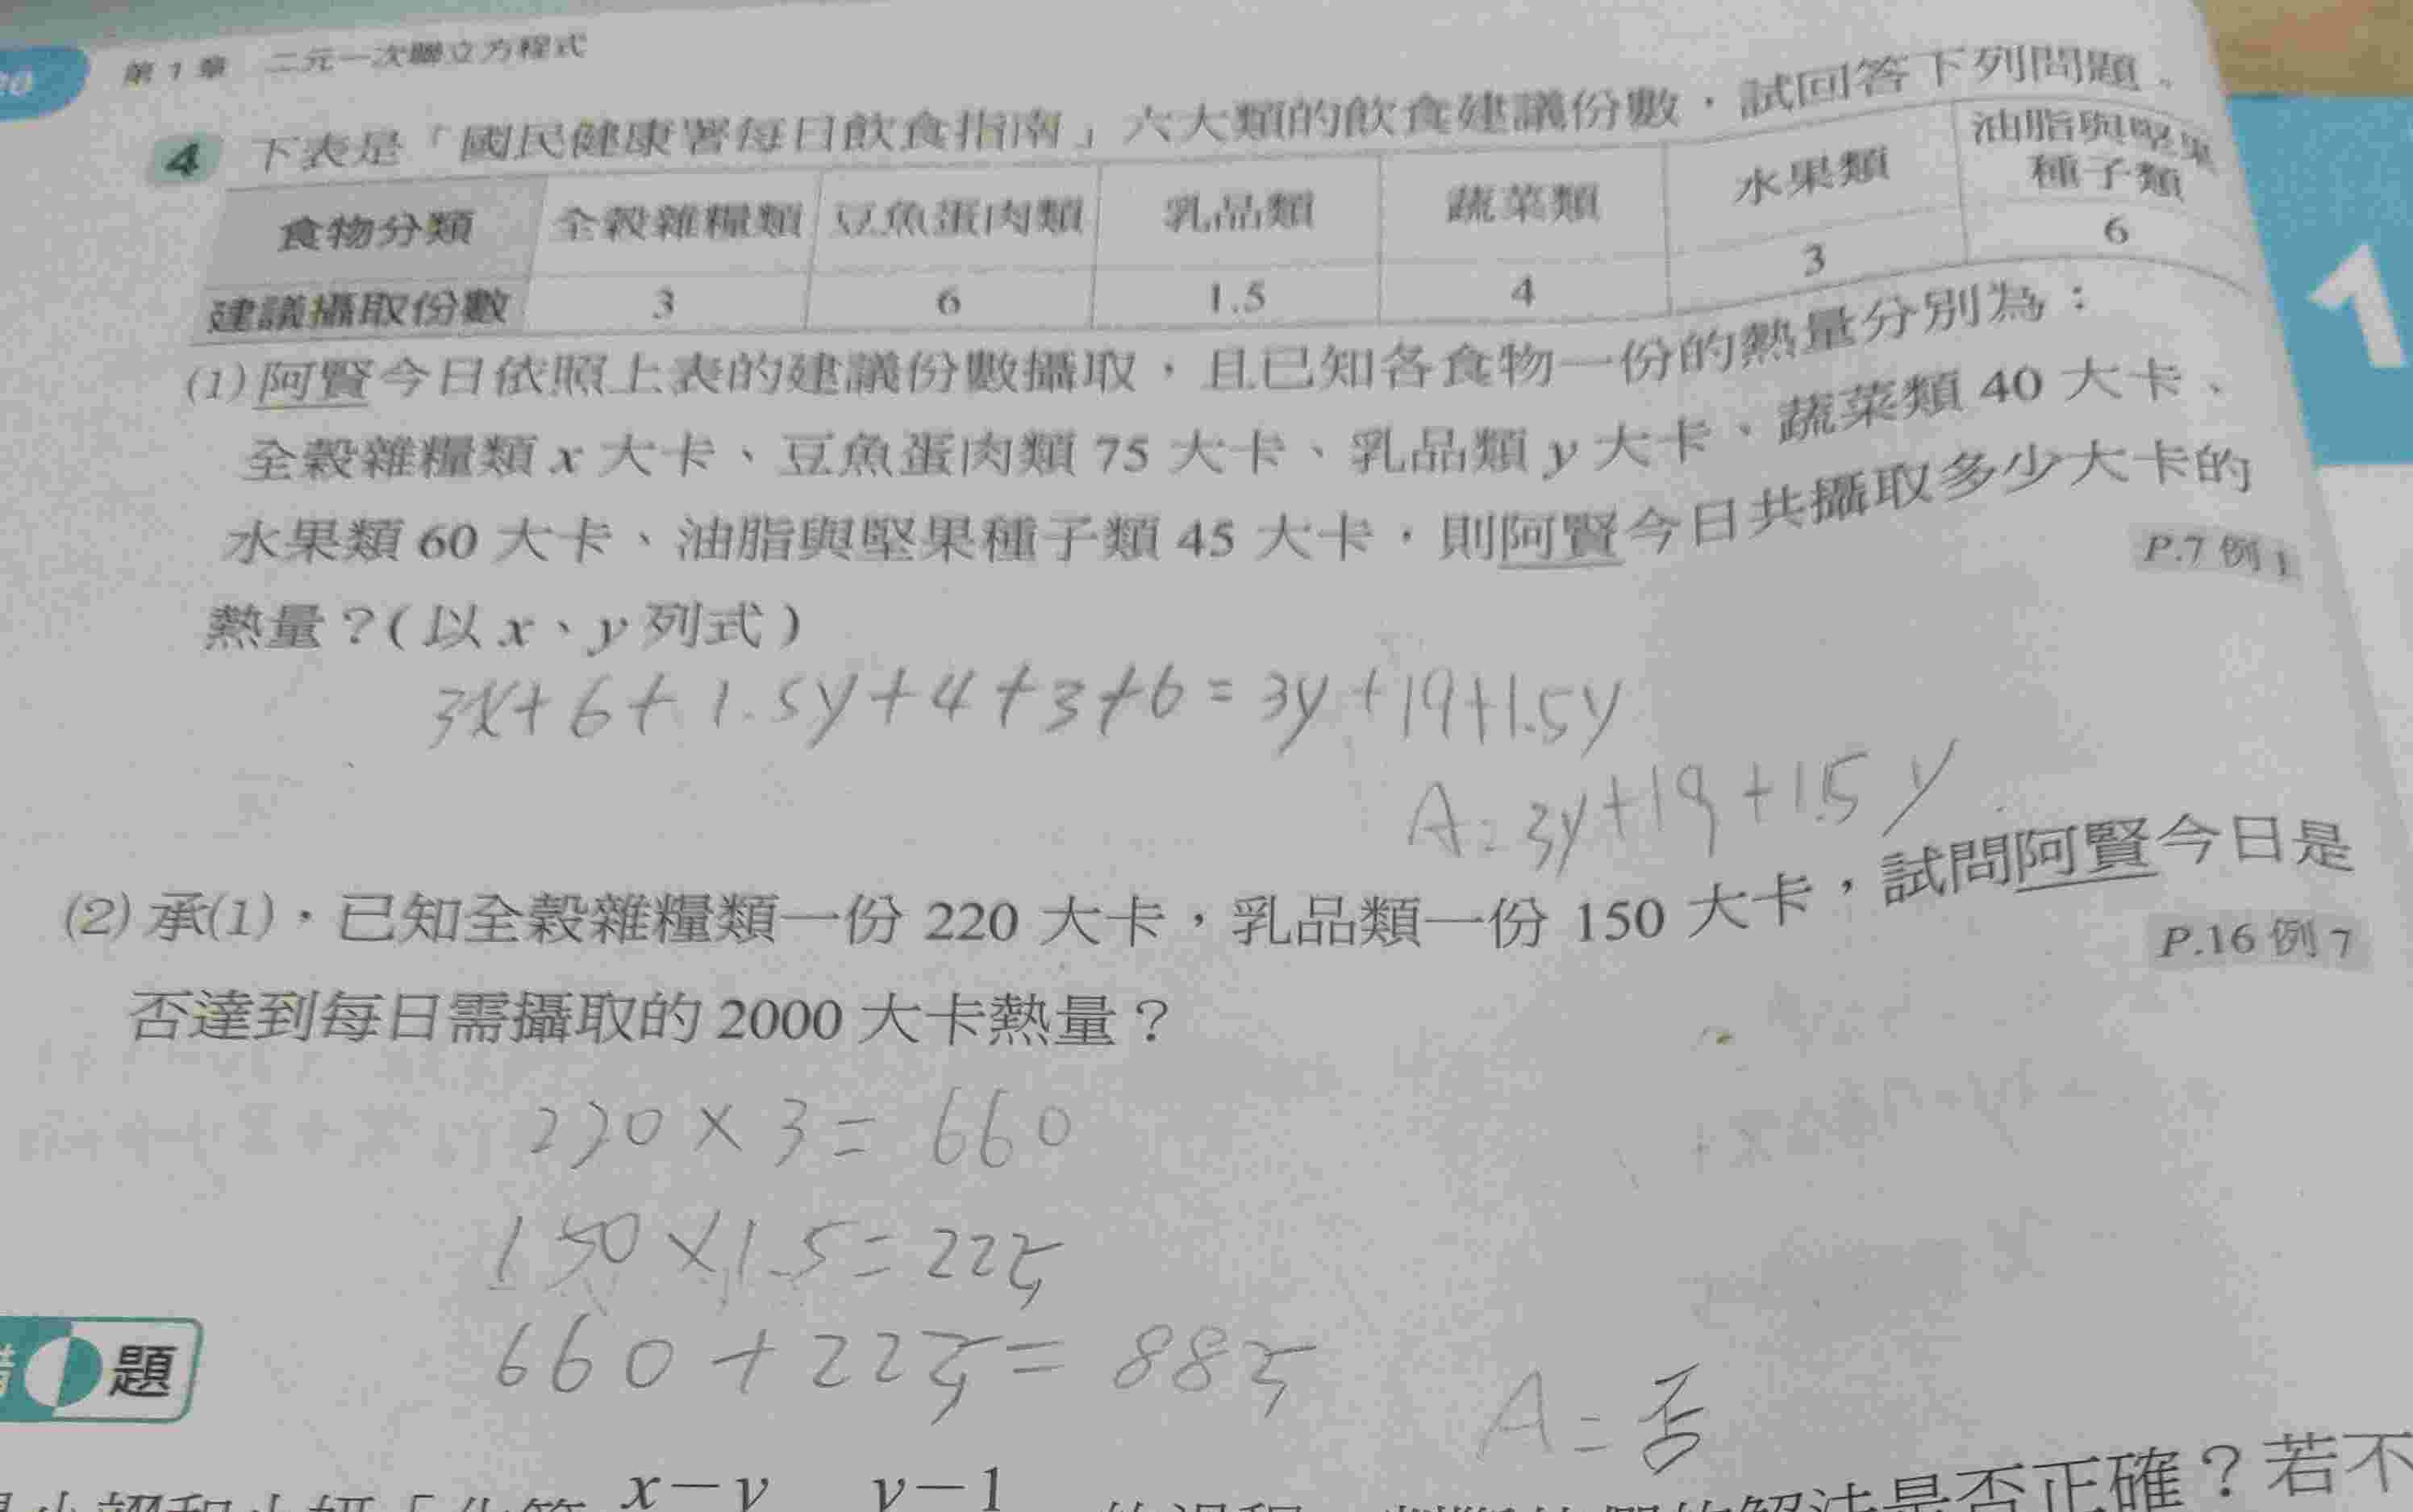 第1章 二元一次聯立方程式
4 下表是「國民健康署每日飲食指南」六大類的飲食建議份數,試回答下列問題。
食物分類 全穀雜糧類 豆魚蛋肉類 乳品類 蔬菜類 水果類 油脂與堅果種子類
建議攝取份數 3 6 1.5 4 3 6
(1) 阿賢今日依照上表的建議份數攝取,且已知各食物一份的熱量分別為:
全穀雜糧類 x 大卡、豆魚蛋肉類 75 大卡、乳品類 y 大卡、蔬菜類 40 大卡、
水果類 60 大卡、油脂與堅果種子類 45 大卡,則阿賢今日共攝取多少大卡的
熱量?(以 x、y 列式)
P.7 例 1
3x+6+1.5y+4+3+6=3y+19+1.5y
A=3y+19+1.5y
(2) 承(1),已知全穀雜糧類一份 220 大卡,乳品類一份 150 大卡,試問阿賢今日是
否達到每日需攝取的 2000 大卡熱量?
P.16 例 7
220×3=660
150×1.5=225
660+225=885
A=否
題
x−y y−1
的解法是否正確?若不
1